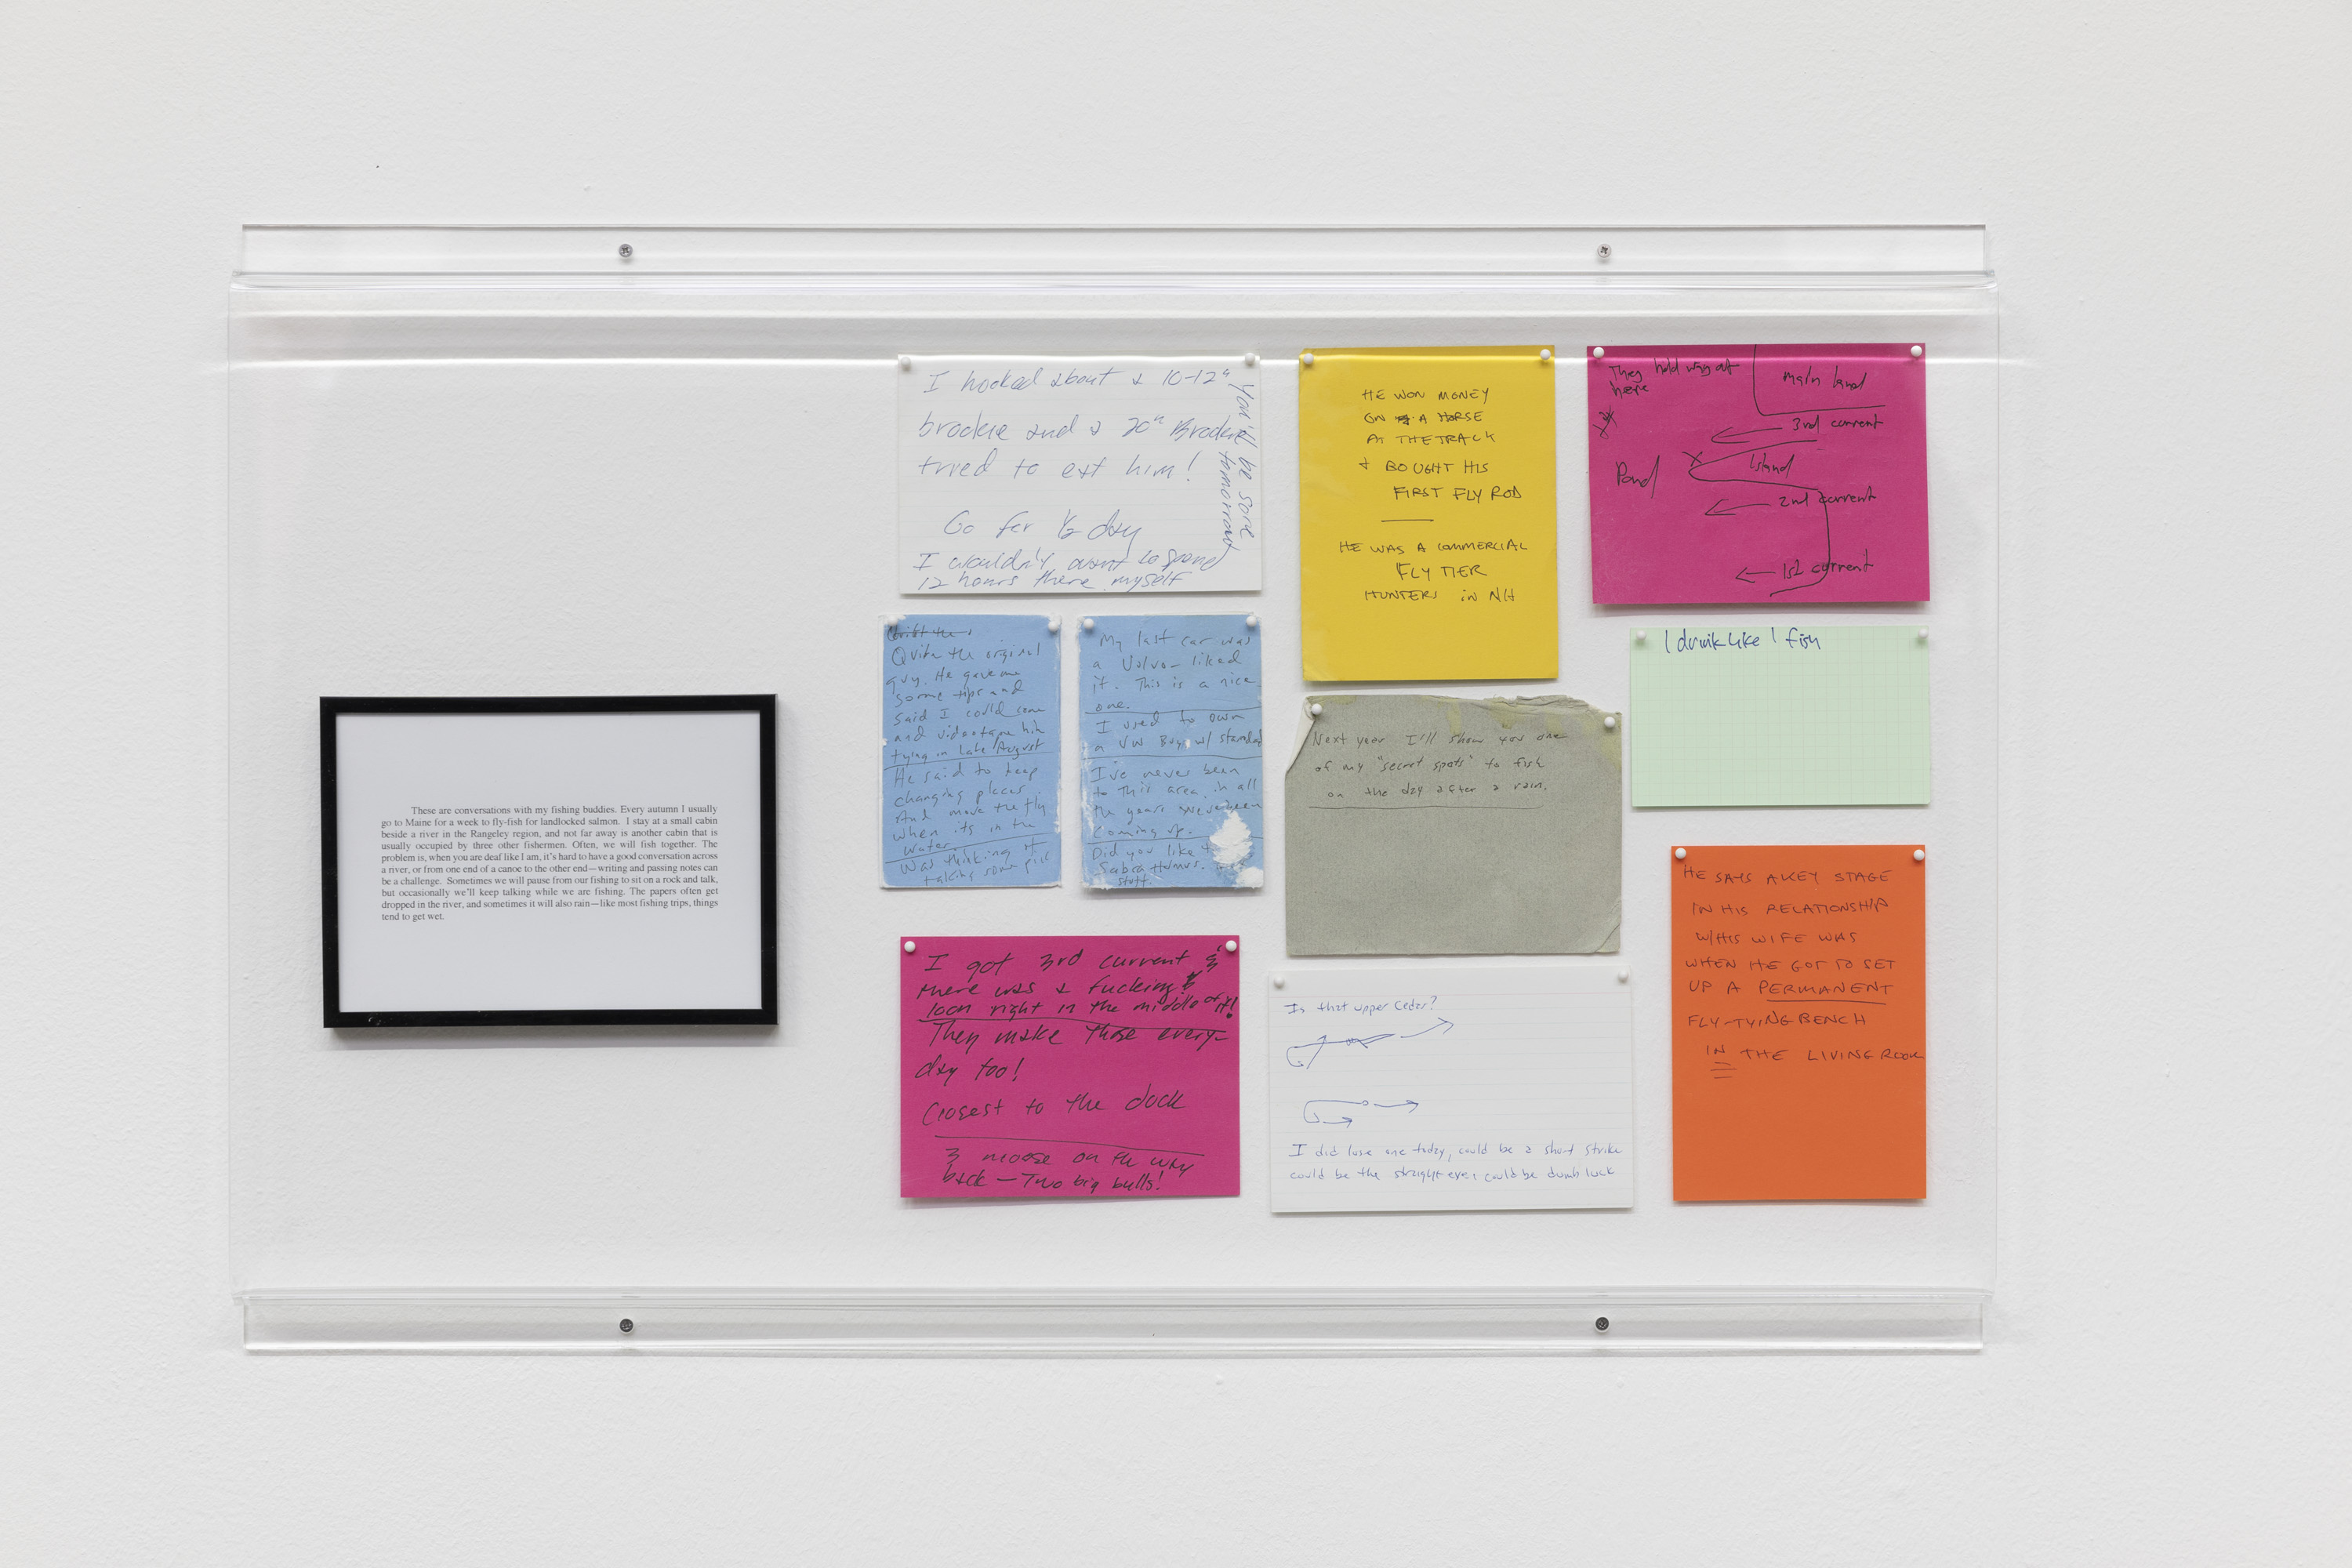 These are conversations with my fishing buddies. Every autumn I usually
go to Maine for a week to fly-fish for landlocked salmon. I stay at a small cabin
beside a river in the Rangeley region, and not far away is another cabin that is
usually occupied by three other fishermen. Often, we will fish together. The
problem is, when you are deaf like I am, it's hard to have a good conversation across
a river, or from one end of a canoe to the other end—writing and passing notes can
be a challenge. Sometimes we will pause from our fishing to sit on a rock and talk,
but occasionally we'll keep talking while we are fishing. The papers often get
dropped in the river, and sometimes it will also rain—like most fishing trips, things
tend to get wet.
I hooked about a 10-12"
brookie and a 20" Brookie
tried to eat him!
Go for ½ day
I wouldn't want to spend
12 hours there myself
You'll be sore
tomorrow
HE WON MONEY
ON A HORSE
AT THE TRACK
+ BOUGHT HIS
FIRST FLY ROD
HE WAS A COMMERCIAL
FLY TIER
HUNTERS in NH
They hold way out
here
main land
3rd current
Island
Pond
2nd current
1st current
Quite the original
guy. He gave me
some tips and
said I could come
and videotape him
tying in late August
He said to keep
changing places
And move the fly
when its in the
water.
Was thinking of
taking some pics
My last car was
a Volvo - liked
it. This is a nice
one.
I used to own
a VW Bug w/ standard
I've never been
to this area in all
the years we've been
coming up.
Did you like
Sabra Humus.
stuff.
I drink like 1 fish
Next year I'll show you one
of my "secret spots" to fish
on the day after a rain.
I got 3rd current &
there was a fucking
loon right in the middle of it!
They make those every-
day too!
Closest to the dock
3 moose on the way
back — Two big bulls!
Is that upper Cedar?
I did lose one today, could be a short strike
could be the straight eye, could be dumb luck
HE SAYS A KEY STAGE
IN HIS RELATIONSHIP
W/HIS WIFE WAS
WHEN HE GOT TO SET
UP A PERMANENT
FLY-TYING BENCH
IN THE LIVING ROOM